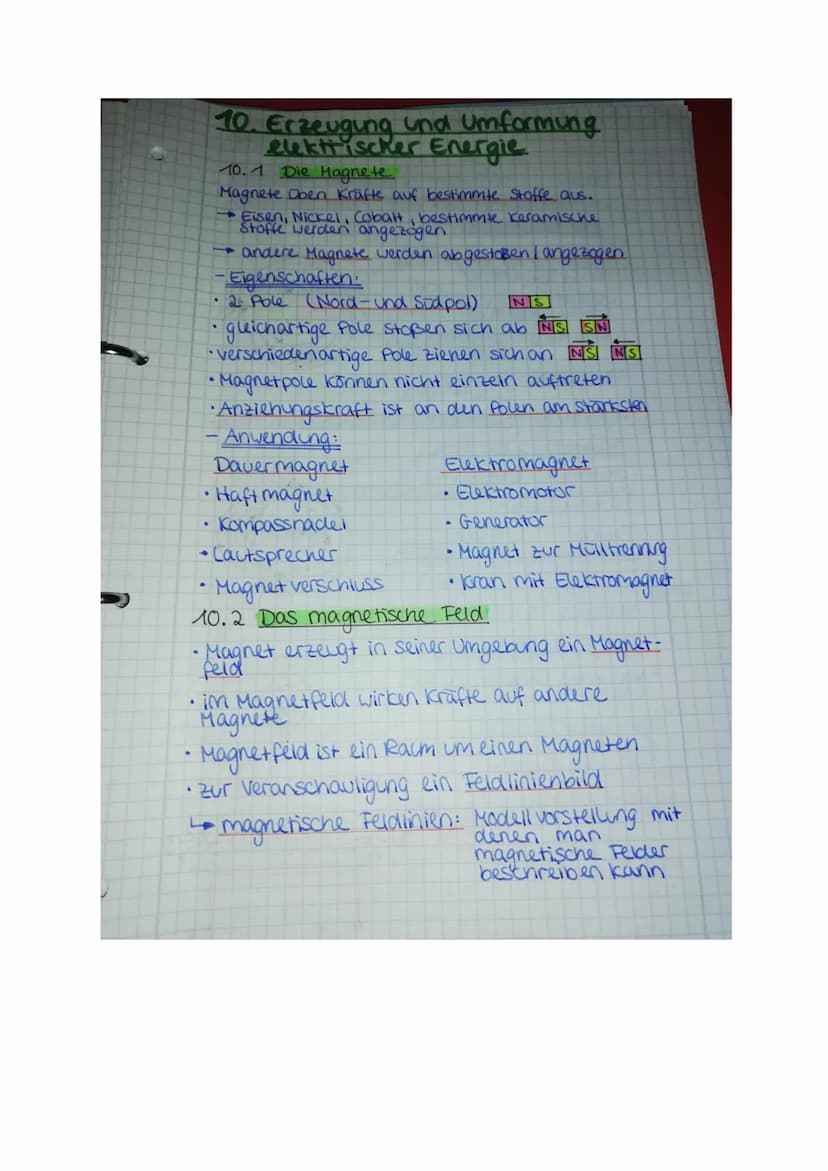 10. Erzeugung und Umformung
elektrischer Energie
10.1 Die Magnete
Magnete üben Kräfte auf bestimmte Stoffe aus.
→ Eisen, Nickel, Cobalt, bestimmte keramische
Stoffe werden angezogen
→ andere Magnete werden abgestoßen/angezogen
- Eigenschaften:
• 2 Pole (Nord- und Südpol) N S
• gleichartige Pole stoßen sich ab N S S N
• verschiedenartige Pole ziehen sich an N S N S
• Magnetpole können nicht einzeln auftreten
• Anziehungskraft ist an den Polen am stärksten
- Anwendung:
Dauermagnet Elektromagnet
• Haftmagnet • Elektromotor
• Kompassnadel • Generator
• Lautsprecher • Magnet zur Mülltrennung
• Magnetverschluss • Kran mit Elektromagnet
10.2 Das magnetische Feld
• Magnet erzeugt in seiner Umgebung ein Magnet-
feld
• im Magnetfeld wirken Kräfte auf andere
Magnete
• Magnetfeld ist ein Raum um einen Magneten
• zur Veranschauligung ein Feldlinienbild
↳ magnetische Feldlinien: Modellvorstellung mit
denen man
magnetische Felder
beschreiben kann